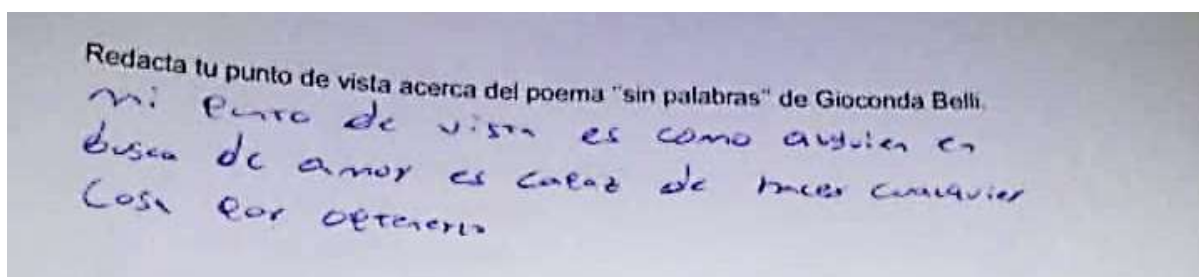 Redacta tu punto de vista acerca del poema "sin palabras" de Gioconda Belli.
mi punto de vista es como alguien en
busca de amor es capaz de hacer cualquier
Cosa por obtenerlo